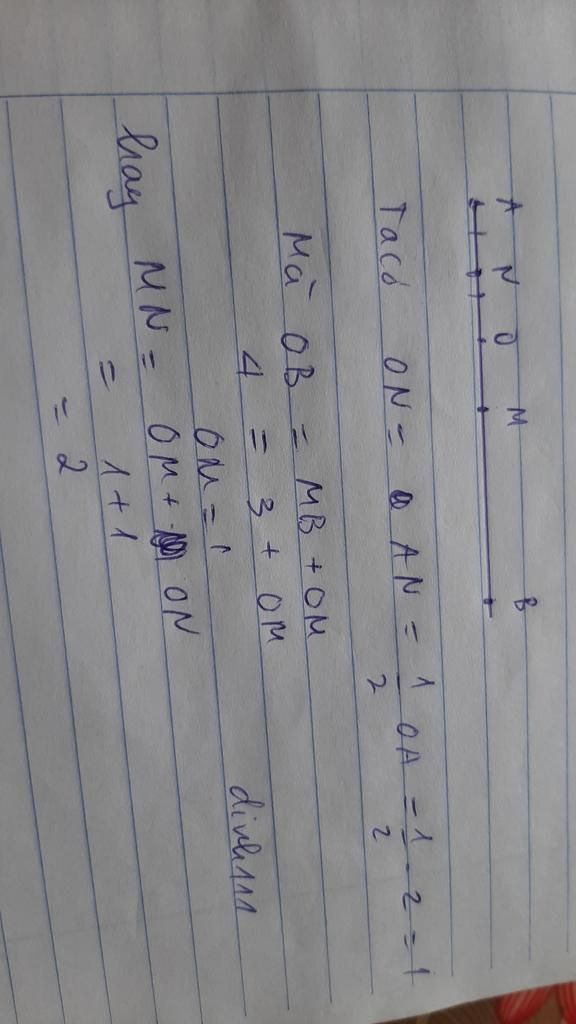 A N O M B
Ta có ON = AN = 1/2 OA = 1/2 . 2 = 1
Mà OB = MB + OM
4 = 3 + OM
OM = 1
hay MN = OM + ON
= 1 + 1
= 2